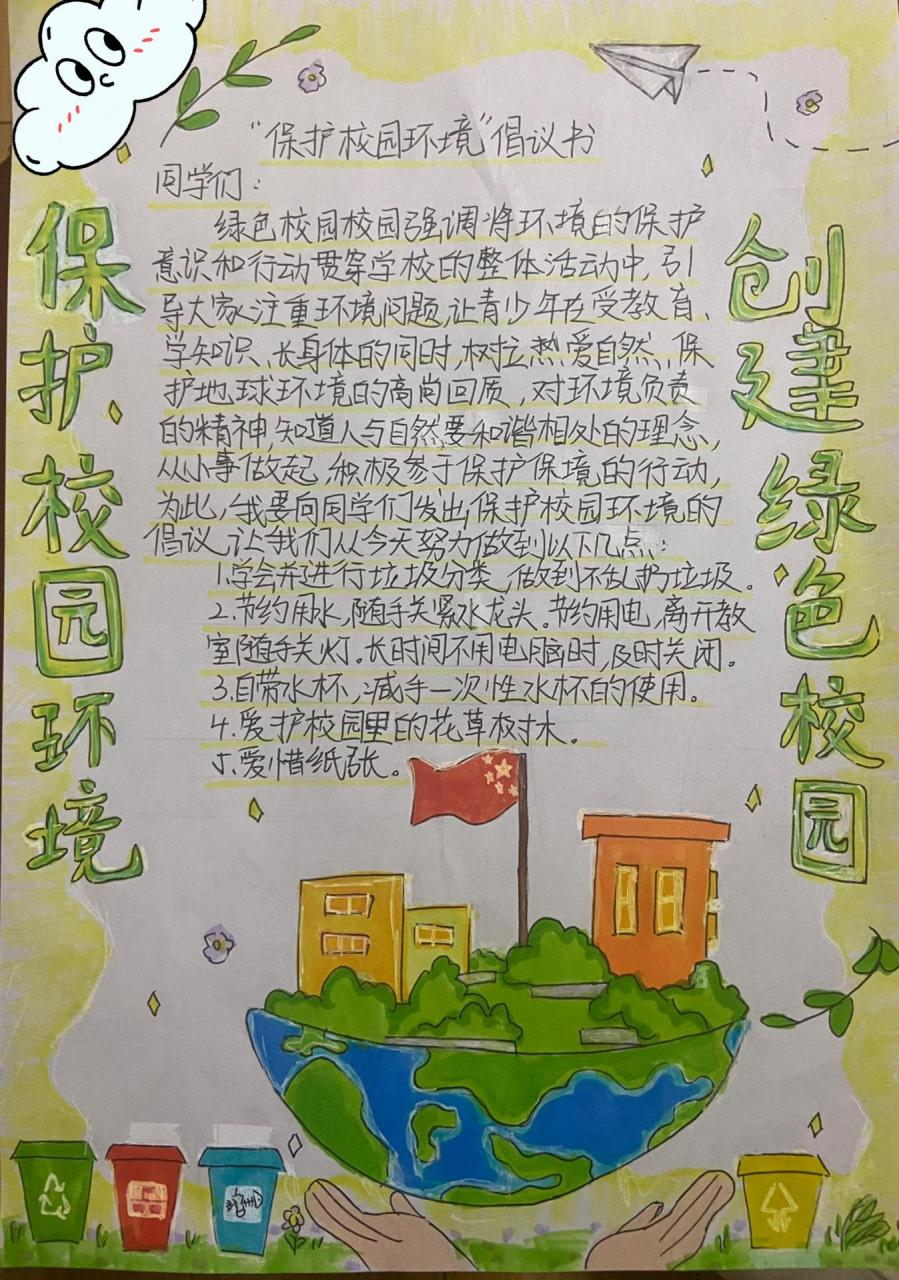 保护校园环境
创建绿色校园
“保护校园环境”倡议书
同学们：
绿色校园校园强调将环境的保护
意识和行动贯穿学校的整体活动中，引
导大家注重环境问题，让青少年在受教育、
学知识、长身体的同时，树立热爱自然、保
护地球环境的高尚回质，对环境负责
的精神，知道人与自然要和谐相处的理念，
从小事做起，积极参于保护保境的行动，
为此，我要向同学们发出，保护校园环境的
倡议，让我们从今天努力做到以下几点：
1.学会并进行垃圾分类，做到不乱扔垃圾。
2.节约用水，随手关紧水龙头。节约用电，离开教
室随手关灯。长时间不用电脑时，及时关闭。
3.自带水杯，减手一次性水杯的使用。
4.爱护校园里的花草树木。
5.爱惜纸张。